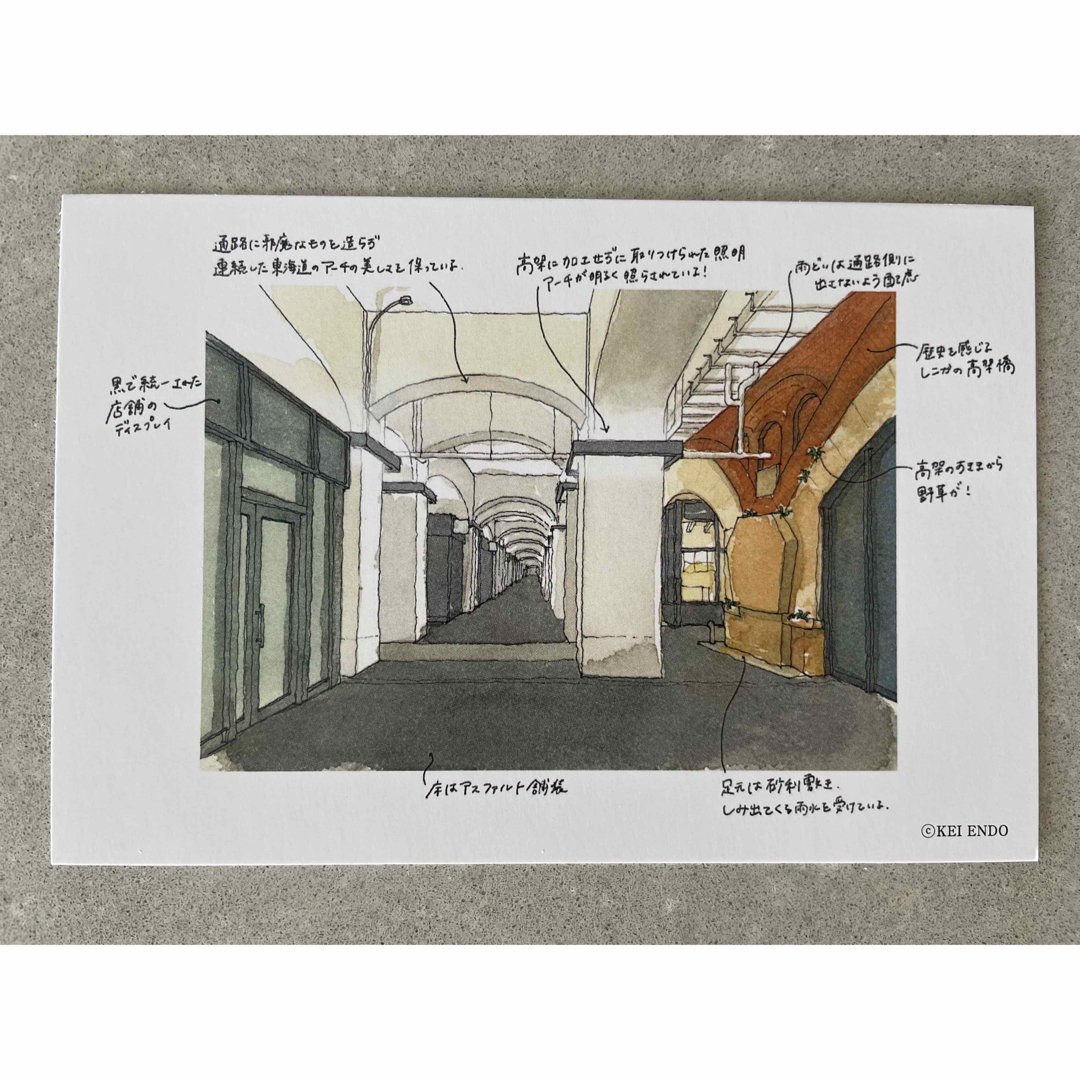 通路に邪魔なものを造らず
連続した東海道のアーチの美しさを保っている.
高架に加工せずに取りつけられた照明
アーチが明るく照らされている!
雨どいは通路側に
出さないよう配慮
歴史を感じる
レンガの高架橋
黒で統一された
店舗の
ディスプレイ
高架のすきまから
野草が!
床はアスファルト舗装
足元は砂利敷き.
しみ出てくる雨水を受けている.
©KEI ENDO